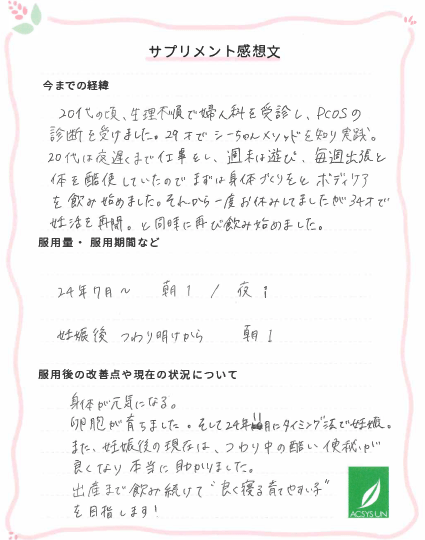 サプリメント感想文
今までの経緯
20代の頃、生理不順で婦人科を受診し、PCOSの
診断を受けました。29才でシーちゃんメソッドを知り実践。
20代は夜遅くまで仕事をし、週末は遊び、毎週出張と
体を酷使していたのでまずは身体づくりをとボディケア
を飲み始めました。それから一度お休みしてましたが34才で
妊活を再開。と同時に再び飲み始めました。
服用量・服用期間など
24年7月～ 朝1 / 夜1
妊娠後 つわり明けから 朝1
服用後の改善点や現在の状況について
身体が元気になる。
卵胞が育ちました。そして24年11月にタイミング法で妊娠。
また、妊娠後の現在は、つわり中の酷い便秘が
良くなり本当に助かりました。
出産まで飲み続けて“良く寝る育てやすい子”
を目指します!
ACSYSUN